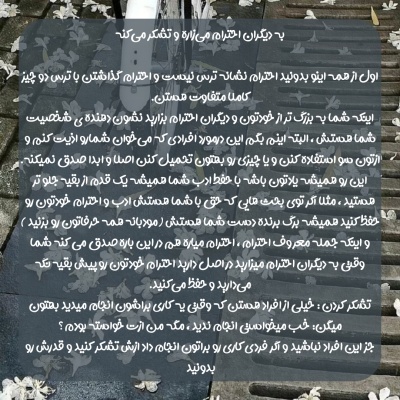 به دیگران احترام می‌زاره و تشکر می‌کنه
اول از همه اینو بدونید احترام نشانه ترس نیست و احترام گذاشتن با ترس دو چیز
کاملا متفاوت هستن.
اینکه شما به بزرگ تر از خودتون و دیگران احترام بزارید نشون دهنده ی شخصیت
شما هستش ، البته اینم بگم این درمورد افرادی که می‌خوان شمارو اذیت کنن و
ازتون سو استفاده کنن و یا چیزی رو بهتون تحمیل کنن اصلا و ابدا صدق نمیکنه.
این رو همیشه یادتون باشه با حفظ ادب شما همیشه یک قدم از بقیه جلو تر
هستید ، مثلا اگر توی بحث هایی که حق با شما هستش ادب و احترام خودتون رو
حفظ کنید همیشه برگ برنده دست شما هستش (مودبانه همه حرفاتون رو بزنید )
و اینکه جمله معروف احترام ، احترام میاره هم در این باره صدق می کنه شما
وقتی به دیگران احترام میزارید در اصل دارید احترام خودتون رو پیش بقیه نگه
می‌دارید و حفظ می‌کنید.
تشکر کردن : خیلی از افراد هستن که وقتی یه کاری براشون انجام میدید بهتون
میگن: خب میخواستی انجام ندید ، مگه من ازت خواسته بودم ؟
جز این افراد نباشید و اگر فردی کاری رو براتون انجام داد ازش تشکر کنید و قدرش رو
بدونید